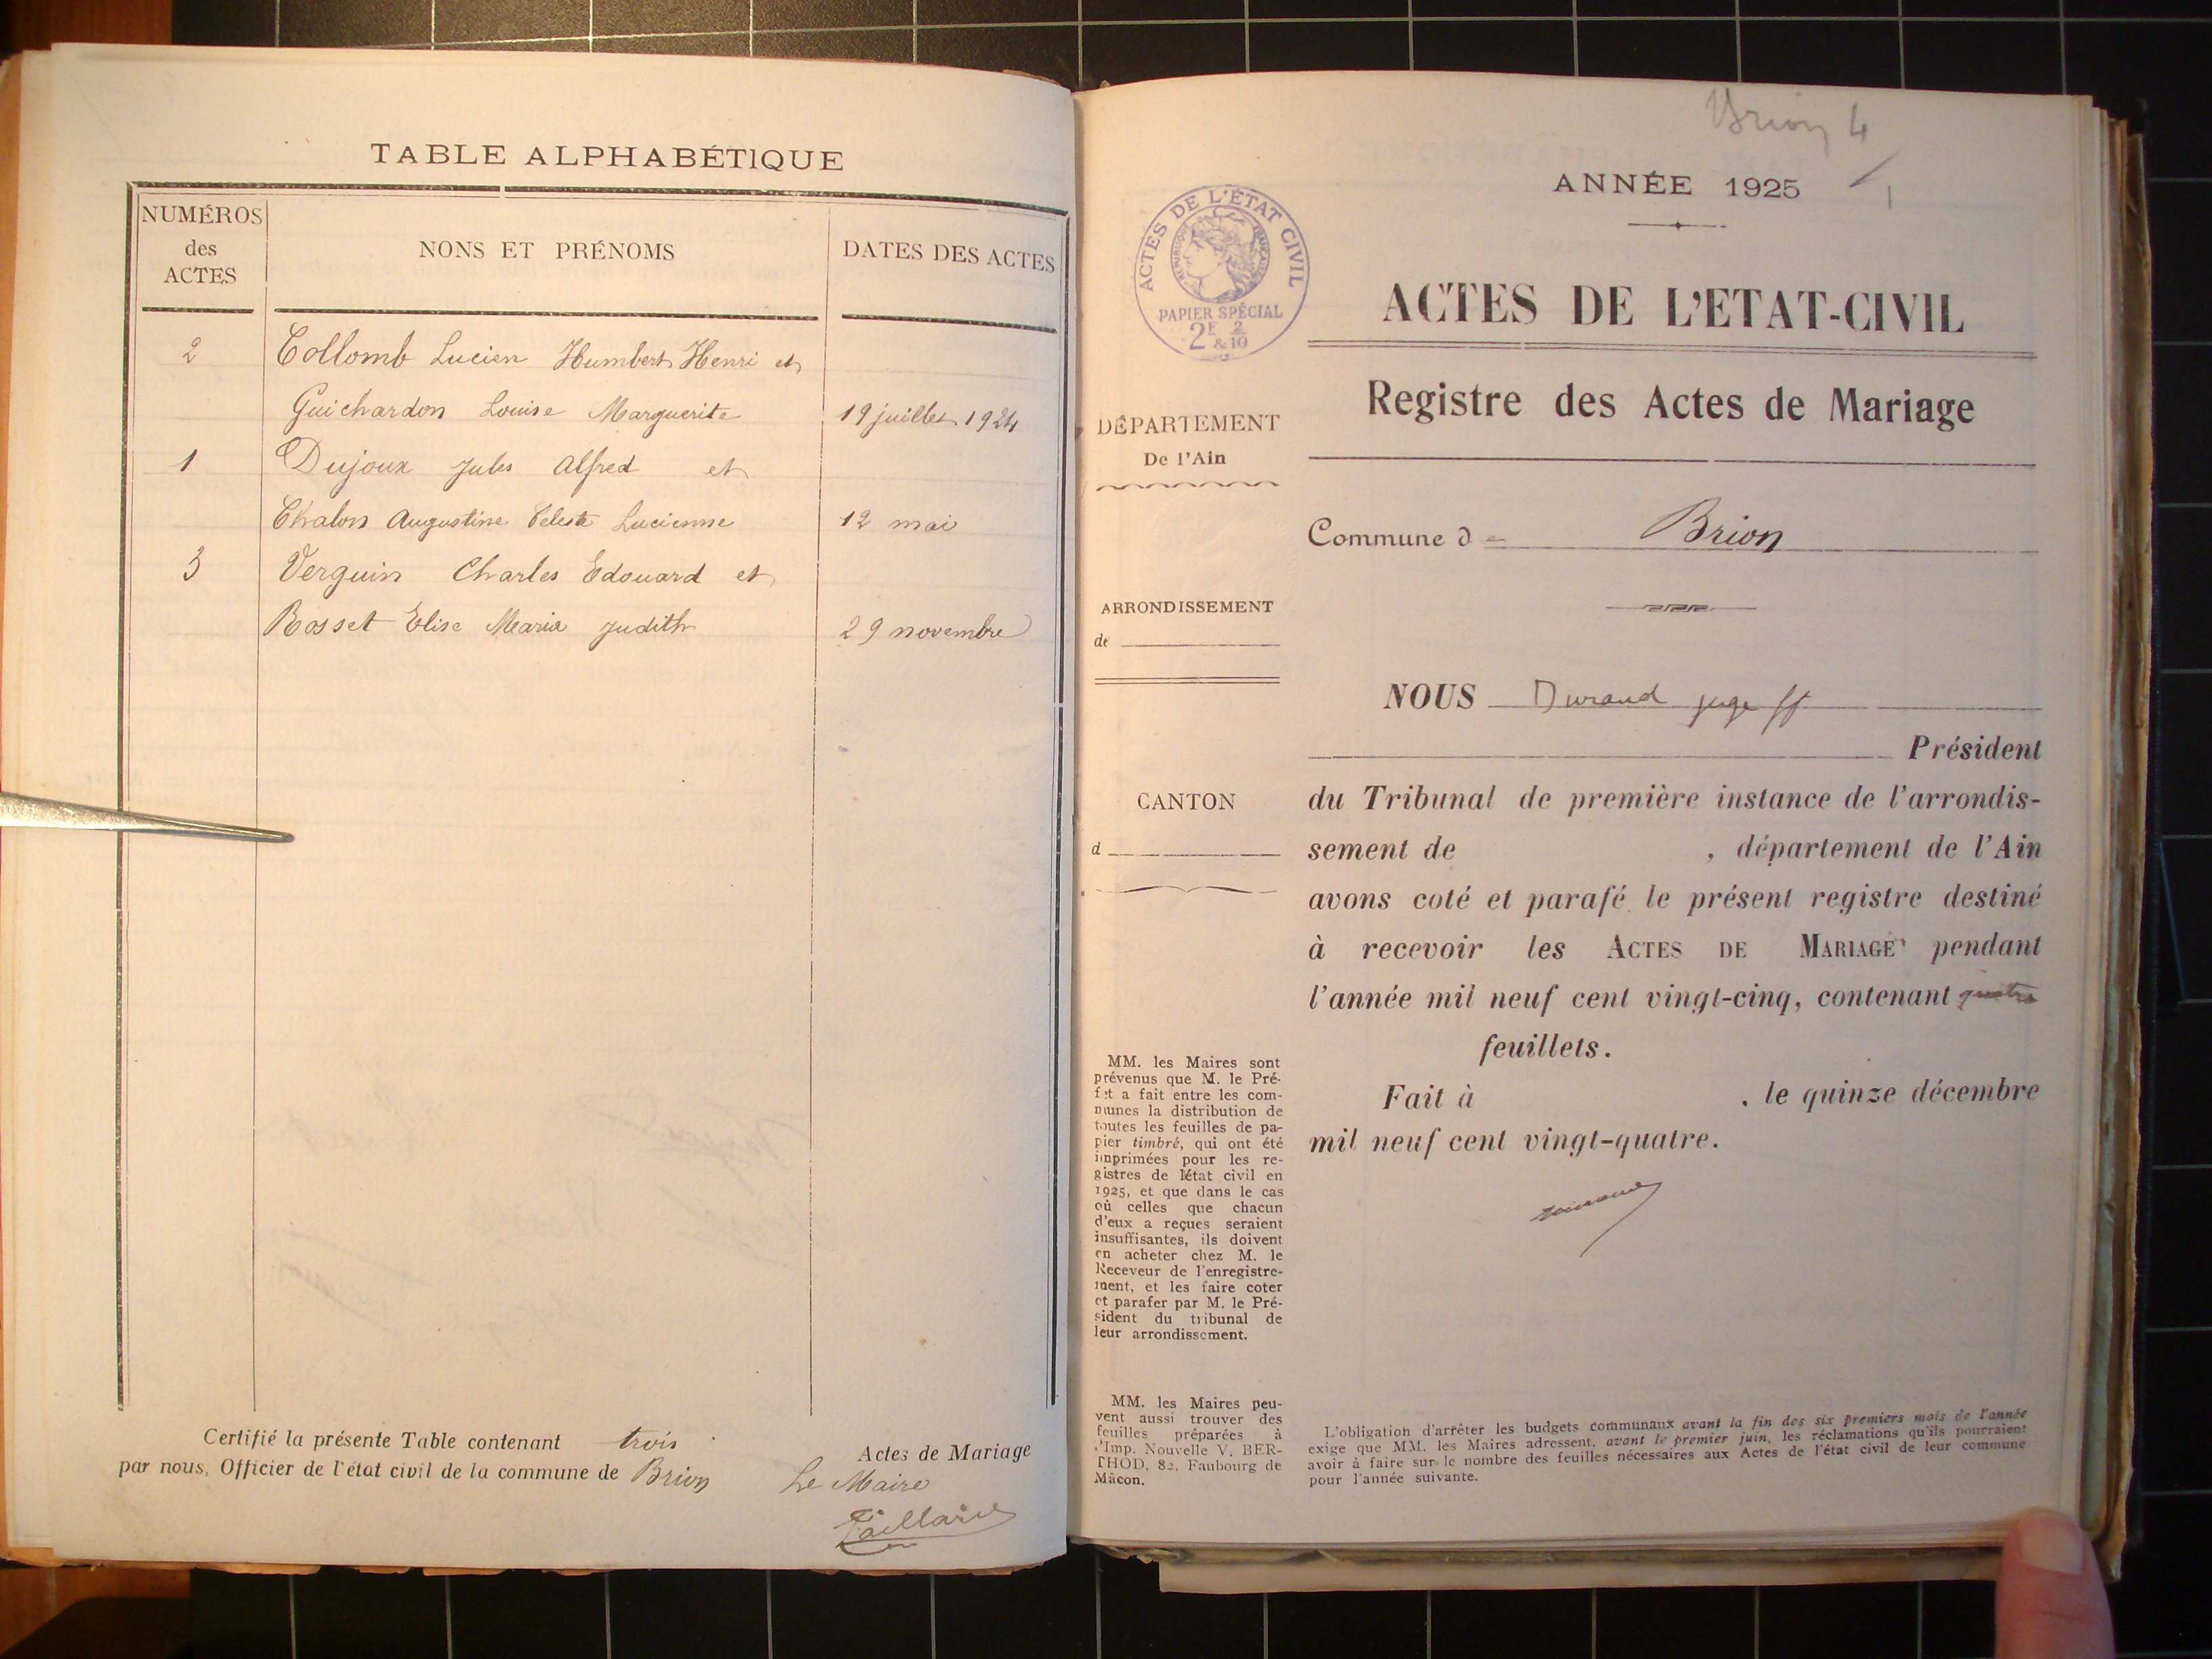 TABLE ALPHABÉTIQUE
NUMÉROS
des
ACTES
NONS ET PRÉNOMS
DATES DES ACTES
2 Collomb Lucien Humbert Henri et
Guichardon Louise Marguerite 19 juillet 1924
1 Dujoux Jules Alfred et
Chalon Augustine Celeste Lucienne 12 mai
3 Verguin Charles Edouard et
Bosset Elise Maria Judith 29 novembre
Certifié la présente Table contenant trois Actes de Mariage
par nous, Officier de l'état civil de la commune de Brion
Le Maire
Brion 4
1
ANNÉE 1925
ACTES DE L'ÉTAT CIVIL
RÉPUBLIQUE FRANÇAISE
PAPIER SPÉCIAL
2F 2
&10
ACTES DE L'ETAT-CIVIL
Registre des Actes de Mariage
DÉPARTEMENT
De l'Ain
Commune de Brion
ARRONDISSEMENT
de
CANTON
d
NOUS Durand juge ff
Président
du Tribunal de première instance de l'arrondis-
sement de , département de l'Ain
avons coté et parafé le présent registre destiné
à recevoir les ACTES DE MARIAGE pendant
l'année mil neuf cent vingt-cinq, contenant quatre
feuillets.
Fait à , le quinze décembre
mil neuf cent vingt-quatre.
MM. les Maires sont
prévenus que M. le Pré-
fet a fait entre les com-
munes la distribution de
toutes les feuilles de pa-
pier timbré, qui ont été
imprimées pour les re-
gistres de l'état civil en
1925, et que dans le cas
où celles que chacun
d'eux a reçues seraient
insuffisantes, ils doivent
en acheter chez M. le
Receveur de l'enregistre-
ment, et les faire coter
et parafer par M. le Pré-
sident du tribunal de
leur arrondissement.
MM. les Maires peu-
vent aussi trouver des
feuilles préparées à
l'Imp. Nouvelle V. BER-
THOD, 82, Faubourg de
Mâcon.
L'obligation d'arrêter les budgets communaux avant la fin des six premiers mois de l'année
exige que MM. les Maires adressent, avant le premier juin, les réclamations qu'ils pourraient
avoir à faire sur le nombre des feuilles nécessaires aux Actes de l'état civil de leur commune
pour l'année suivante.